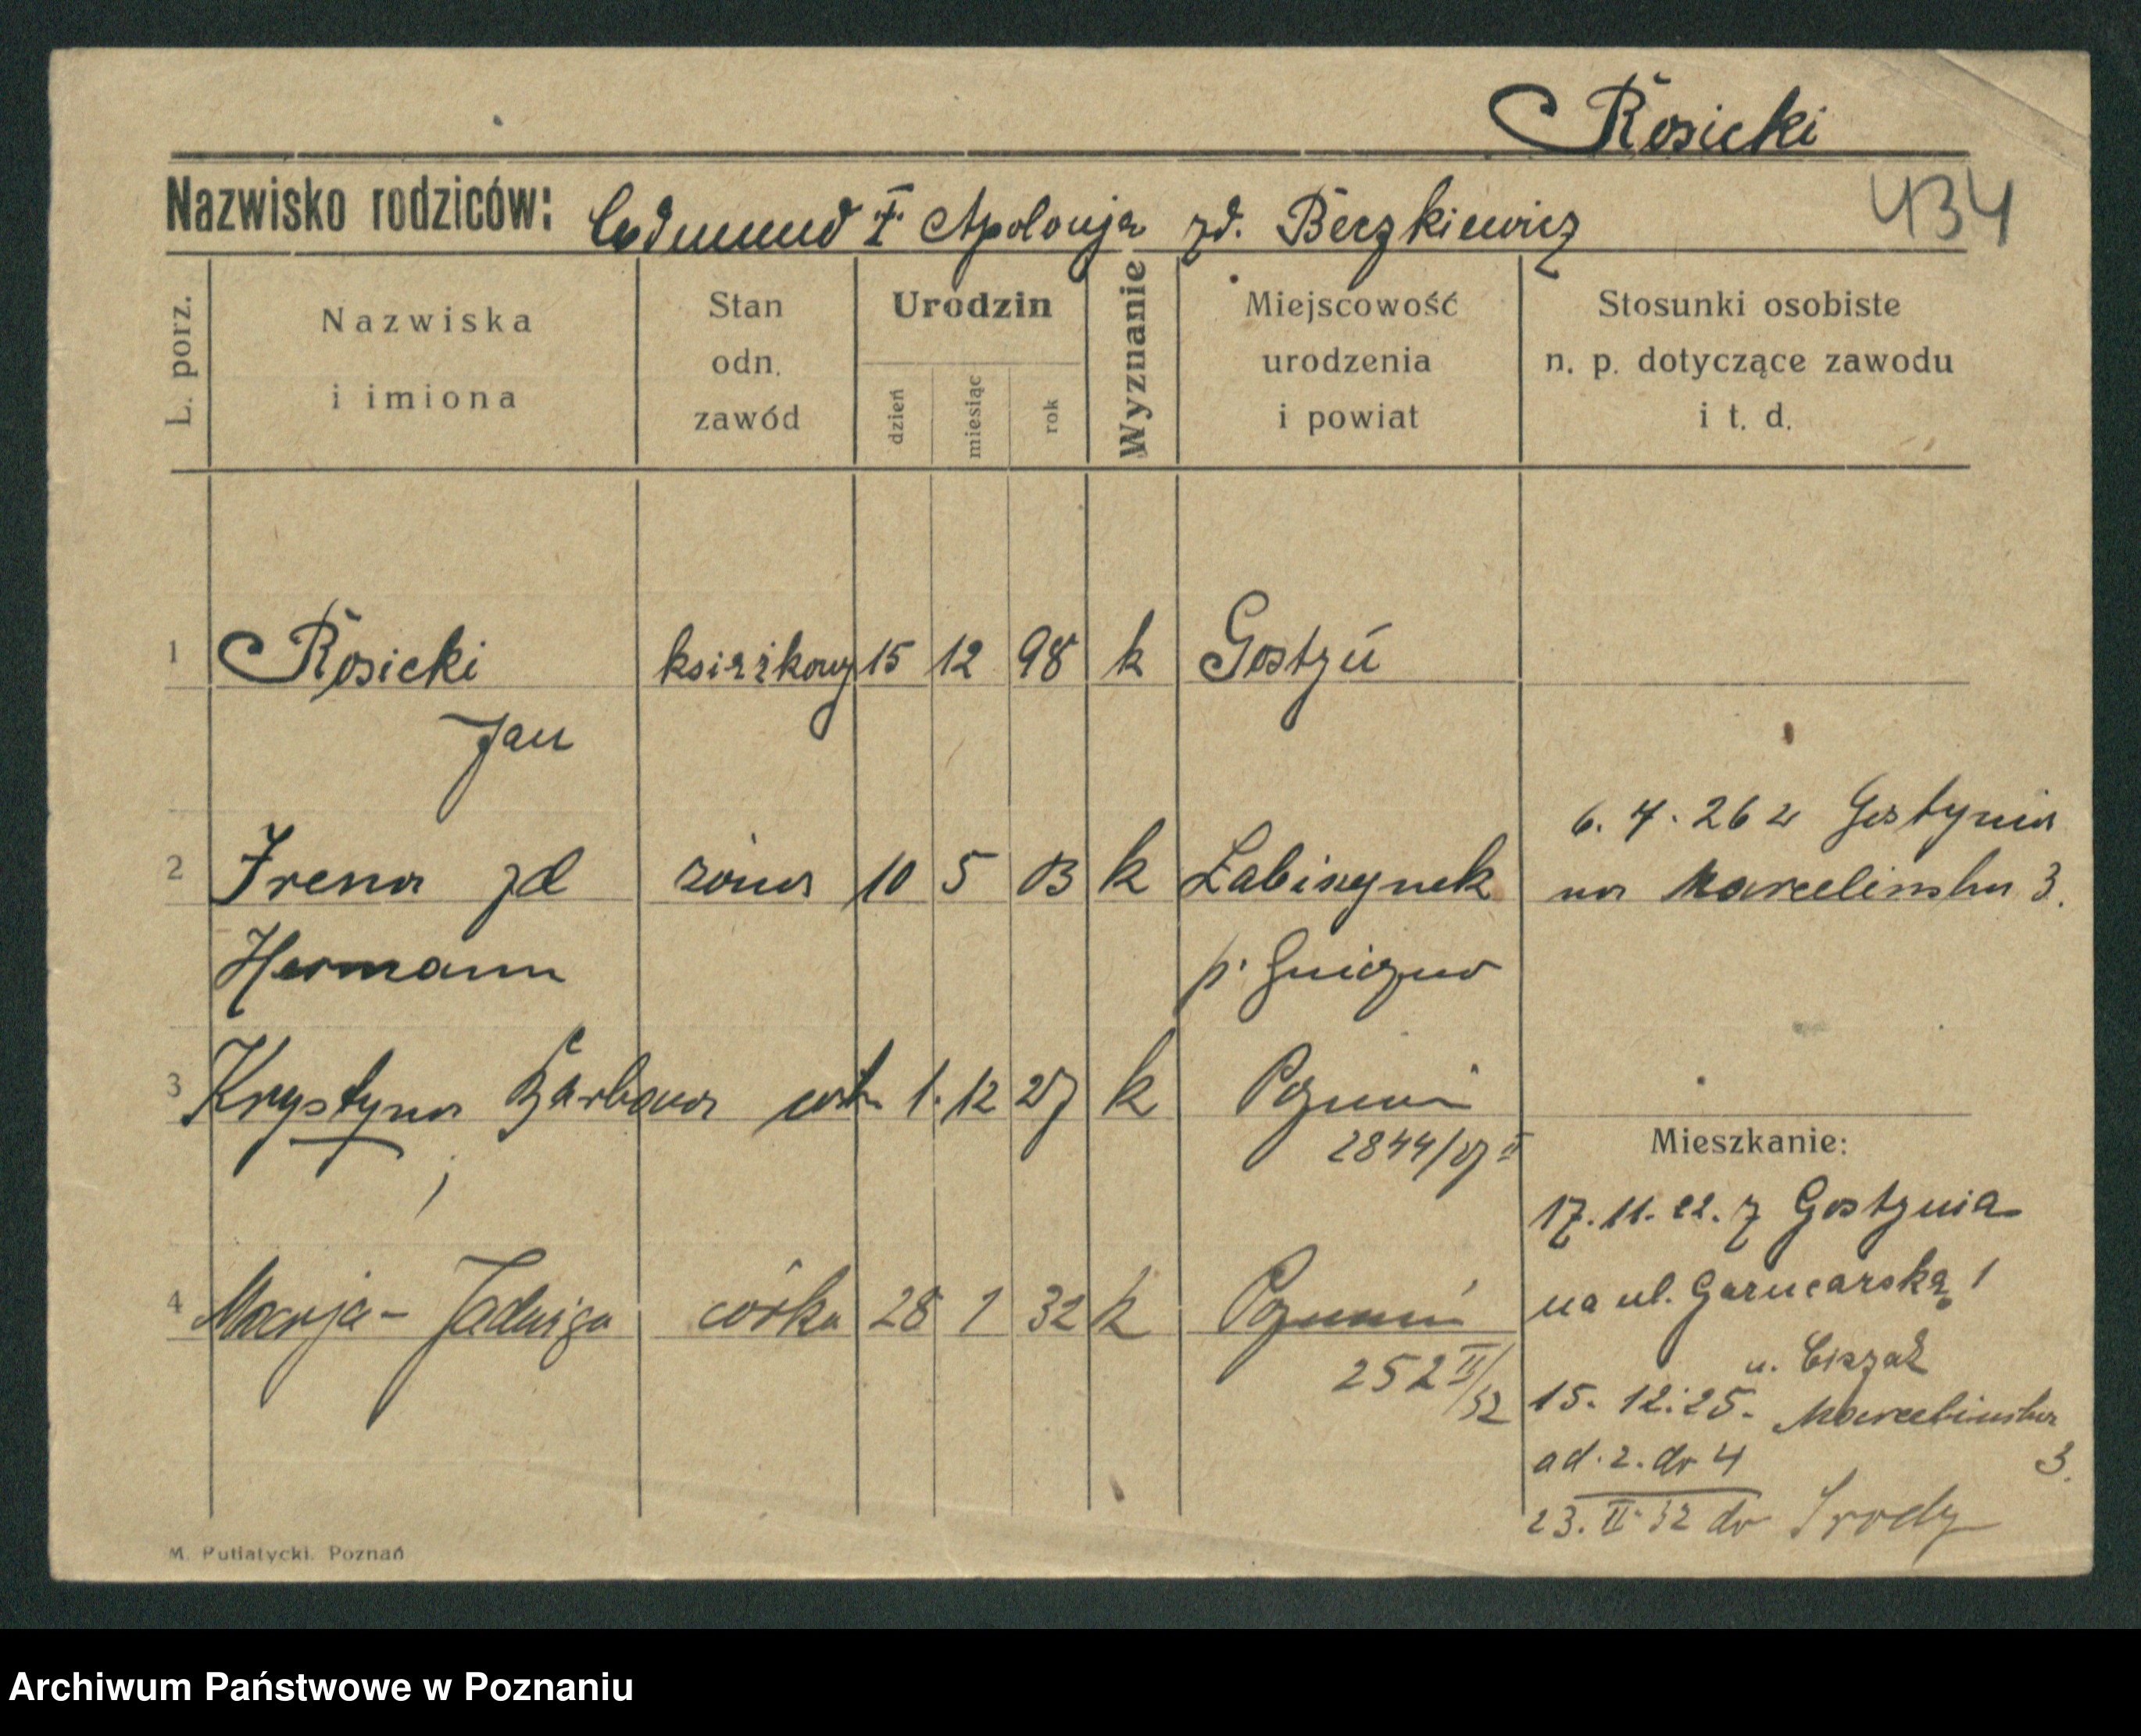 Rosicki
Nazwisko rodziców: Edmund i Apolonja zd. Berzkiewicz
434
L. porz.
Nazwiska i imiona
Stan odn. zawód
Urodzin
dzień
miesiąc
rok
Wyznanie
Miejscowość urodzenia i powiat
Stosunki osobiste n. p. dotyczące zawodu i t. d.
1 Rosicki książkowy 15 12 98 k Gostyń
Jan
6. 4. 26 z Gostynia
2 Irena zd żona 10 5 03 k Łabiszynek na Marcelińska 3.
Hermann p. Gniezno
3 Krystyna Barbara córk. 1. 12 27 k Poznań
2844/27 II
Mieszkanie:
17. 11. 22. z Gostynia
4 Marja-Jadwiga córka 28 1 32 k Poznań
na ul. Garncarską 1
252 II/32
u. Ciszak
15. 12. 25. Marcelińska 3.
ad. 2. do 4
23. II 32 do Środy
M. Putiatycki. Poznań
Archiwum Państwowe w Poznaniu